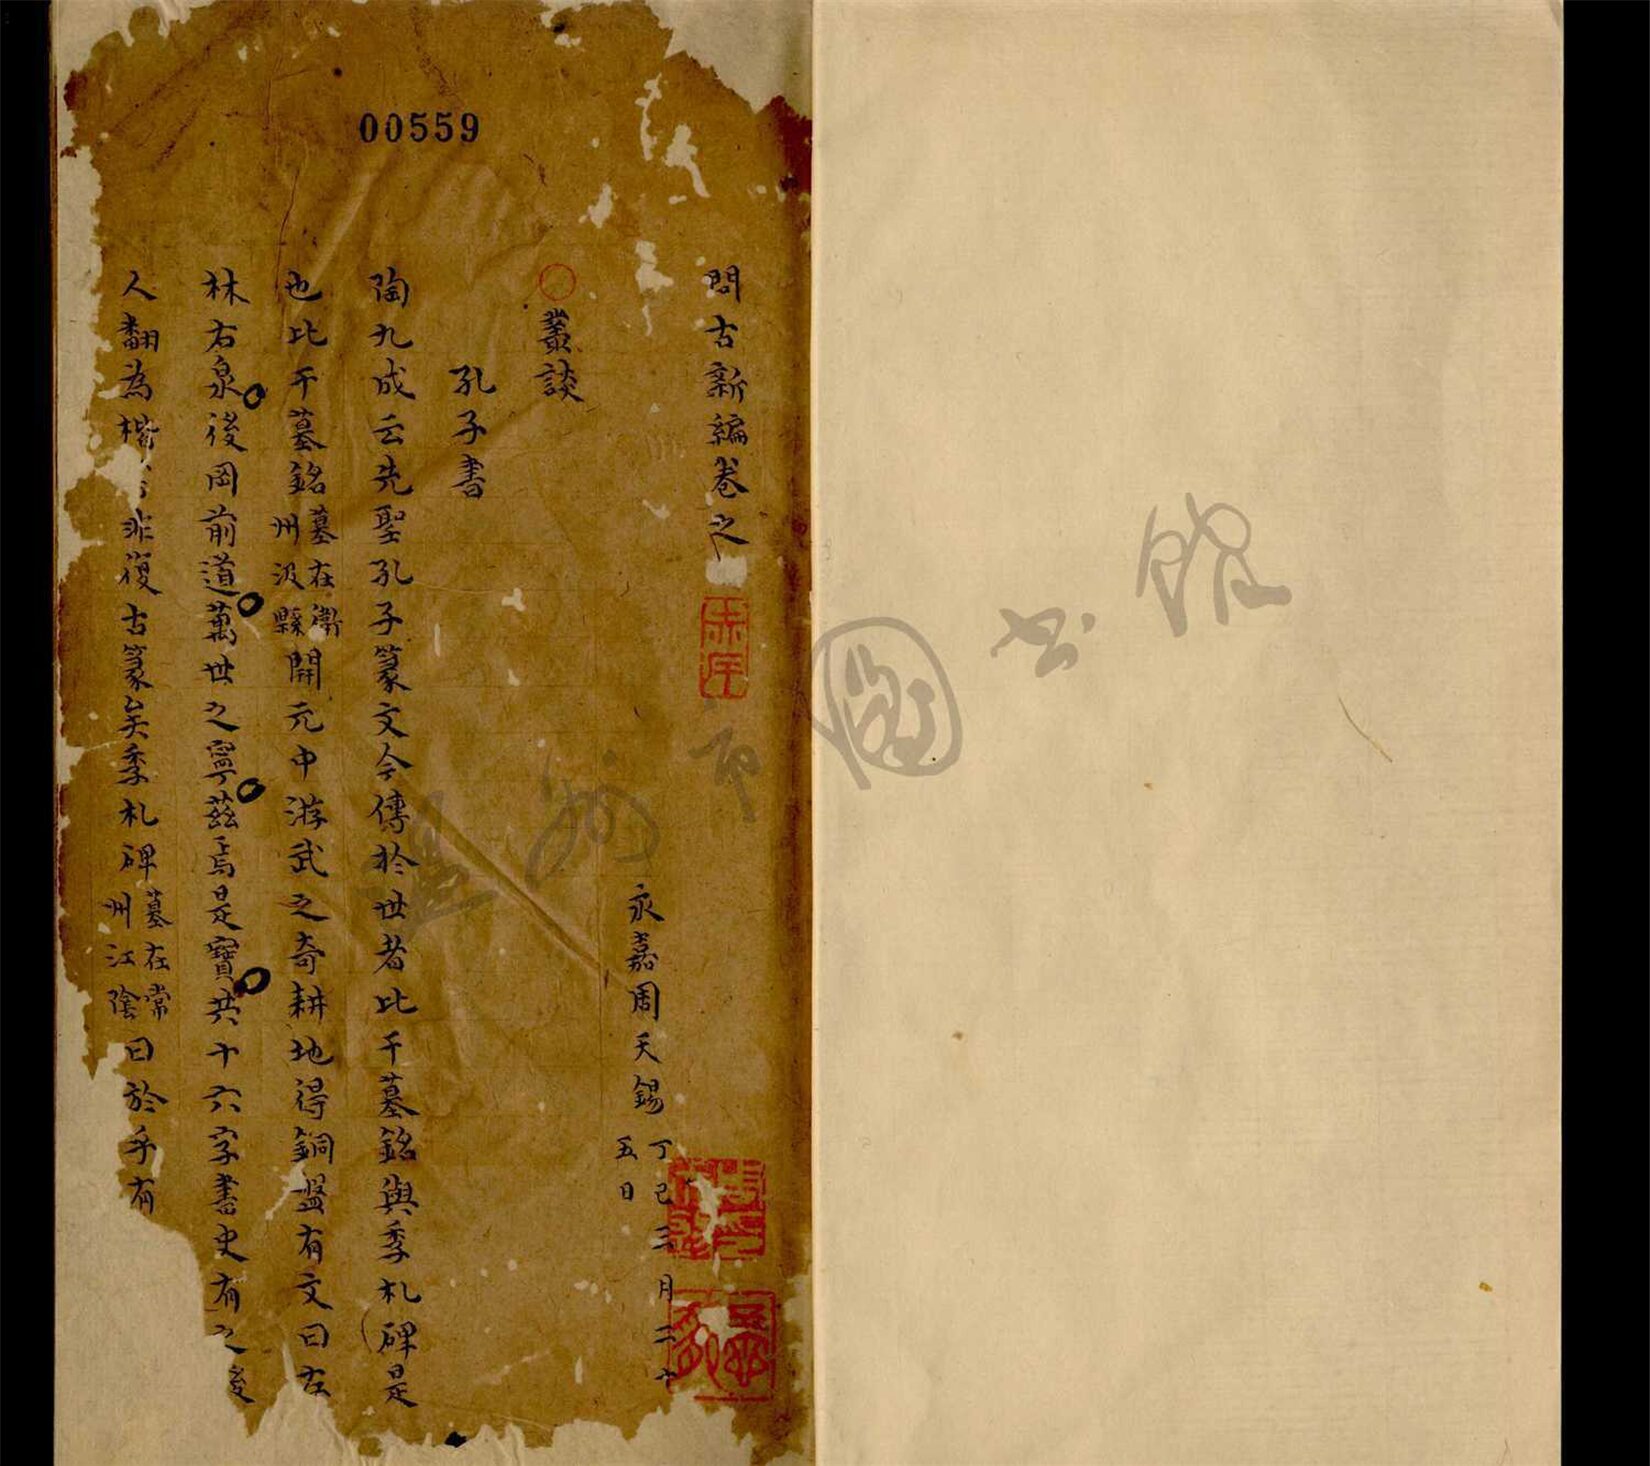 00559
問古新編卷之
永嘉周天錫 丁巳三月二十五日
叢談
孔子書
陶九成云先聖孔子篆文今傳於世者比干墓銘與季札碑是
也比干墓銘墓在衛州汲縣開元中游武之奇耕地得銅盤有文曰左
林右泉後岡前道萬世之寧茲焉是寶共十六字書史有之後
人翻為楷 非復古篆矣季札碑墓在常州江陰曰於乎有
溫州市圖書館